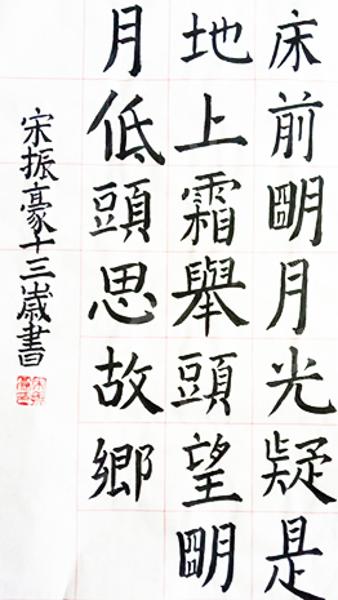 床前朙月光疑是
地上霜舉頭望朙
月低頭思故鄉
宋振豪十三歲書